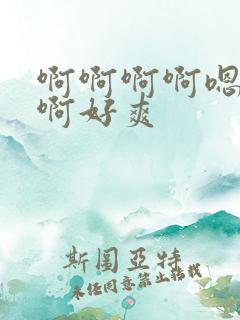 啊啊啊啊嗯
啊好爽
斯图亚特
未经同意禁止转载